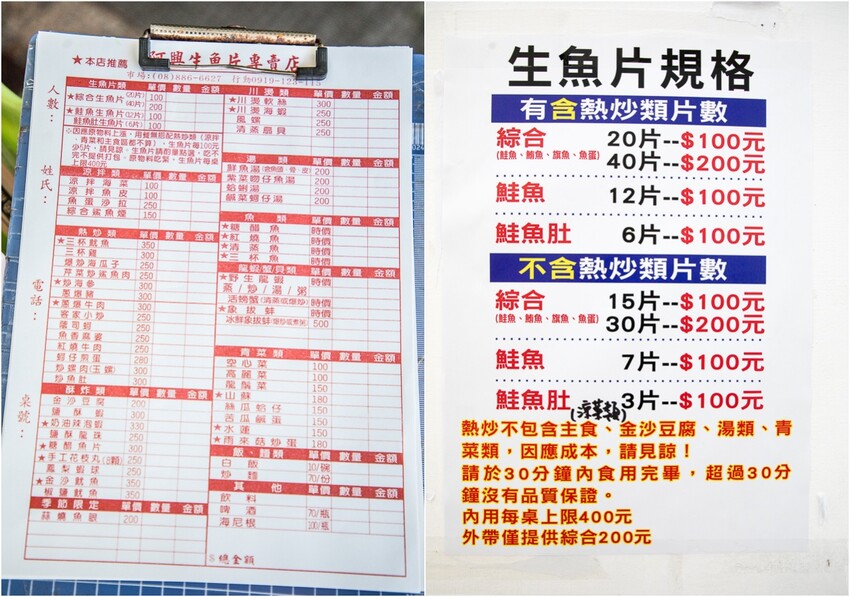 ★本店推薦 阿興生魚片專賣店
市場:(08)886-6627 行動0919-123-115
人數：
姓氏：
電話：
桌號：
生魚片類 單價 數量 金額
★綜合生魚片(20片) 100
(40片) 200
★鮭魚生魚片(12片) 100
鮭魚肚生魚片(6片) 100
涼拌類 單價 數量 金額
涼拌海菜 100
涼拌魚皮 100
魚蛋沙拉 250
綜合鯊魚煙 150
熱炒類 單價 數量 金額
★三杯魷魚 350
三杯雞 300
爆炒海瓜子 250
芹菜炒鯊魚肉 250
★炒海參 300
蔥爆豬 300
★蔥爆牛肉 300
客家小炒 250
魚香茄子 250
紅燒牛肉 250
蚵仔煎蛋 280
炒螺肉(玉螺) 300
炒魚肚 300
酥炸類 單價 數量 金額
金沙豆腐 200
鹽酥蝦 300
★奶油辣泡蝦 330
鹽酥龍珠 250
★糖醋魚片 300
★手工花枝丸(8顆) 250
鳳梨蝦球 250
★金沙魷魚 350
椒鹽魷魚 350
季節限定 單價 數量 金額
蒜燒魚銀 200
川燙類 單價 數量 金額
★川燙軟絲 300
★川燙海蝦 250
風螺 250
清蒸扇貝 250
湯類 單價 數量 金額
鮮魚湯 200
紫菜吻仔魚湯 200
蛤蜊湯 200
鹹菜鰇仔湯 200
魚類 單價 數量 金額
★糖醋魚 時價
★紅燒魚 時價
★清蒸魚 時價
★三杯魚 時價
龍蝦/蟹/貝類 單價 數量 金額
★野生龍蝦 時價
蒸/炒/湯/粥
活螃蟹(清蒸或爆炒) 時價
★象拔蚌 時價
冰鮮象拔蚌 500
青菜類 單價 數量 金額
空心菜 100
高麗菜 100
龍鬚菜 100
★山蘇 150
絲瓜蛤仔 150
苦瓜鹹蛋 150
★水蓮 150
★雨來菇炒蛋 180
飯、麵類 單價 數量 金額
白飯 10/碗
炒麵 70/份
其他 單價 數量 金額
飲料
啤酒 70/瓶
海尼根 100/瓶
$總金額
生魚片規格
有含熱炒類片數
綜合 20片--$100元
(鮭魚、鮪魚、旗魚、魚蛋) 40片--$200元
鮭魚 12片--$100元
鮭魚肚 6片--$100元
不含熱炒類片數
綜合 15片--$100元
(鮭魚、鮪魚、旗魚、魚蛋) 30片--$200元
鮭魚 7片--$100元
鮭魚肚 3片--$100元
熱炒不包含主食、金沙豆腐、湯類、青
菜類，因應成本，請見諒！
請於30分鐘內食用完畢，超過30分
鐘沒有品質保證。
內用每桌上限400元
外帶僅提供綜合200元